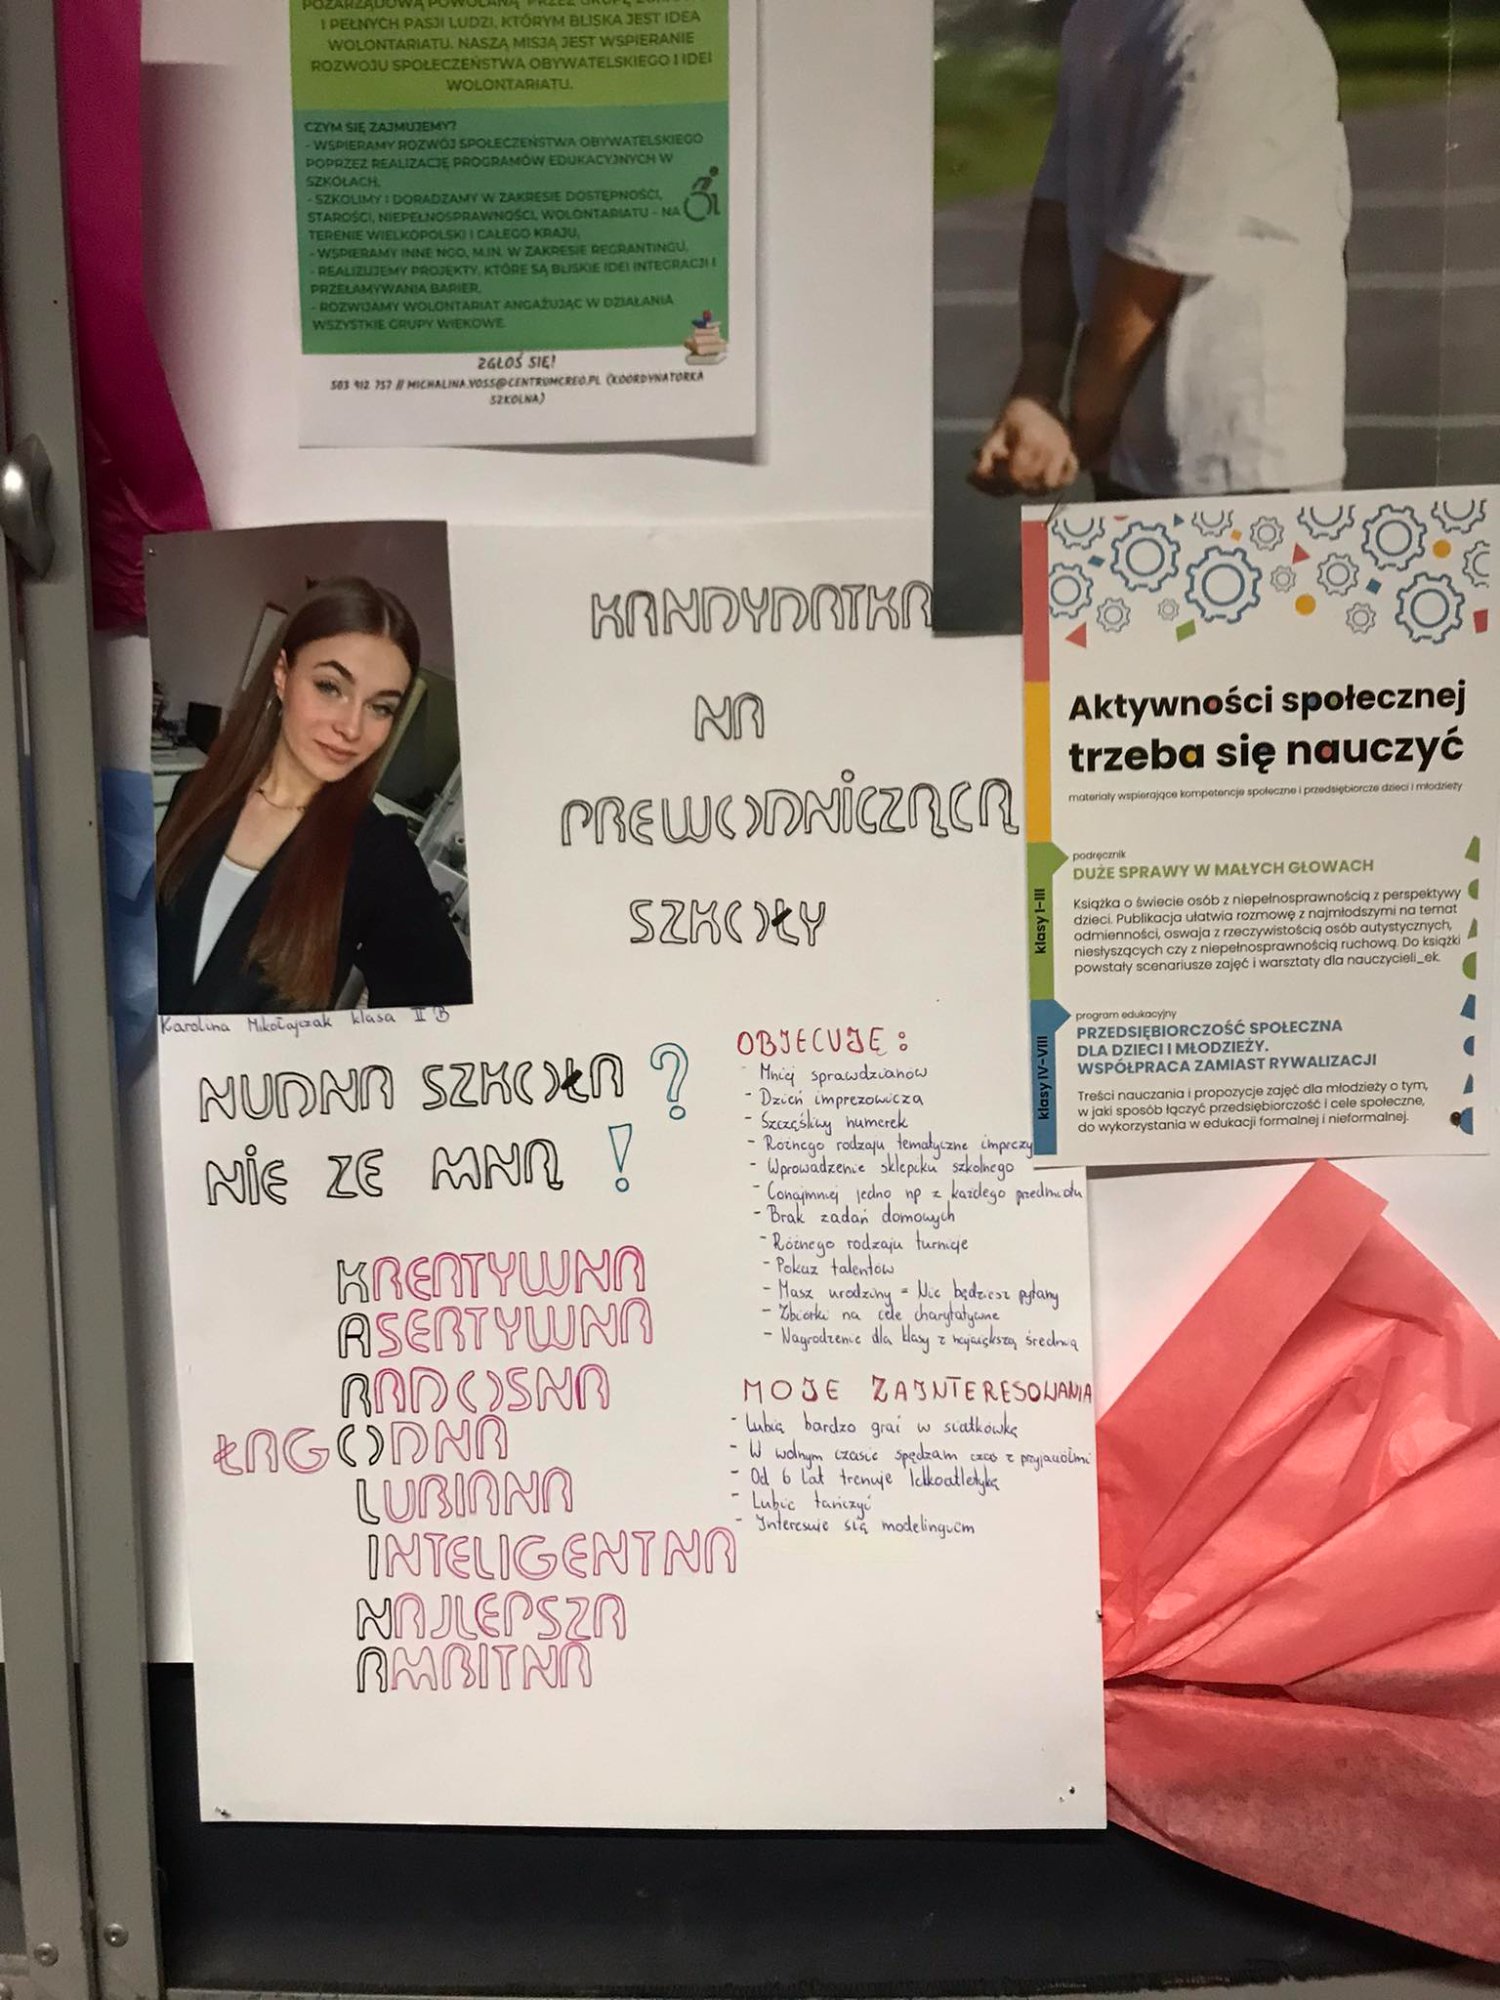 POZARZĄDOWĄ POWOŁANĄ PRZEZ GRUPĘ
I PEŁNYCH PASJI LUDZI, KTÓRYM BLISKA JEST IDEA
WOLONTARIATU. NASZĄ MISJĄ JEST WSPIERANIE
ROZWOJU SPOŁECZEŃSTWA OBYWATELSKIEGO I IDEI
WOLONTARIATU.
CZYM SIĘ ZAJMUJEMY?
- WSPIERAMY ROZWÓJ SPOŁECZEŃSTWA OBYWATELSKIEGO
POPRZEZ REALIZACJĘ PROGRAMÓW EDUKACYJNYCH W
SZKOŁACH,
- SZKOLIMY I DORADZAMY W ZAKRESIE DOSTĘPNOŚCI,
STAROŚCI, NIEPEŁNOSPRAWNOŚCI, WOLONTARIATU - NA
TERENIE WIELKOPOLSKI I CAŁEGO KRAJU,
- WSPIERAMY INNE NGO, M.IN. W ZAKRESIE REGRANTINGU,
- REALIZUJEMY PROJEKTY, KTÓRE SĄ BLISKIE IDEI INTEGRACJI I
PRZEŁAMYWANIA BARIER,
- ROZWIJAMY WOLONTARIAT ANGAŻUJĄC W DZIAŁANIA
WSZYSTKIE GRUPY WIEKOWE.
ZGŁOŚ SIĘ!
503 912 757 // MICHALINA.VOSS@CENTRUMCREO.PL (KOORDYNATORKA
SZKOLNA)
KANDYDATKA
NA
PREWODNICZĄCĄ
SZKOŁY
Karolina Mikołajczak klasa II B
NUDNA SZKOŁA ?
NIE ZE MNĄ !
KREATYWNA
ASERTYWNA
RADOSNA
ŁAGODNA
LUBIANA
INTELIGENTNA
NAJLEPSZA
AMBITNA
OBJECUJĘ :
- Mniej sprawdzianów
- Dzień imprezowicza
- Szczęśliwy numerek
- Róznego rodzaju tematyczne imprezy
- Wprowadzenie sklepiku szkolnego
- Conajmniej jedno np z każdego przedmiotu
- Brak zadań domowych
- Różnego rodzaju turnieje
- Pokaz talentów
- Masz urodziny = Nie będziesz pytany
- Zbiorki na cele charytatywne
- Nagrodzenie dla klasy z największą średnią
MOJE ZAJNTERESOWANIA
- Lubię bardzo grać w siatkówkę
- W wolnym czasie spędzam czas z przyjaciółmi
- Od 6 lat trenuje lekkoatletykę
- Lubię tańczyć
- Interesuje się modelingiem
Aktywności społecznej
trzeba się nauczyć
materiały wspierające kompetencje społeczne i przedsiębiorcze dzieci i młodzieży
klasy I-III
podręcznik
DUŻE SPRAWY W MAŁYCH GŁOWACH
Książka o świecie osób z niepełnosprawnością z perspektywy
dzieci. Publikacja ułatwia rozmowę z najmłodszymi na temat
odmienności, oswaja z rzeczywistością osób autystycznych,
niesłyszących czy z niepełnosprawnością ruchową. Do książki
powstały scenariusze zajęć i warsztaty dla nauczycieli_ek.
klasy IV-VIII
program edukacyjny
PRZEDSIĘBIORCZOŚĆ SPOŁECZNA
DLA DZIECI I MŁODZIEŻY.
WSPÓŁPRACA ZAMIAST RYWALIZACJI
Treści nauczania i propozycje zajęć dla młodzieży o tym,
w jaki sposób łączyć przedsiębiorczość i cele społeczne,
do wykorzystania w edukacji formalnej i nieformalnej.